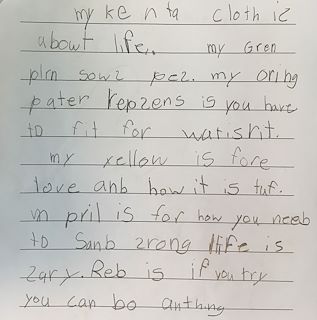 my kenta cloth iz
about life.. my Gren
plrn sowz pez. my oring
pater repzens is you have
to fit for watisrit.
my yellow is fore
love anb how it is tuf.
vn pril is for how you neeb
to Sanb zrong life is
zary. Reb is if you try
you can bo anthing